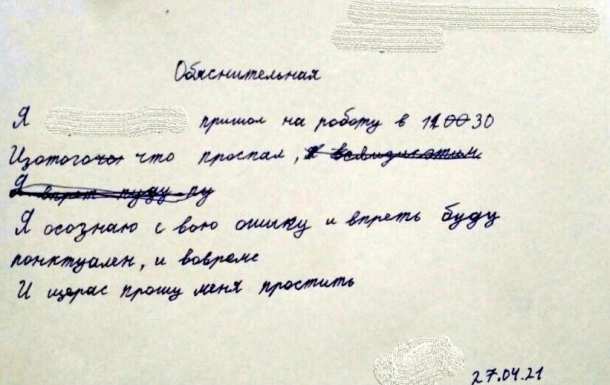 Обяснительная
Я пришол на роботу в 110030
Изотогочо что проспал,
Я впрет пуду пу
Я осознаю с вою ошику и впреть буду
понктуален, и вовремс
И щерас прошу меня простить
27.04.21